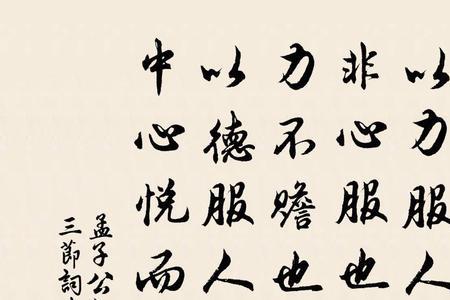 以力服人
非心服也
力不贍也
以德服人
中心悦而
孟子公
三節詞